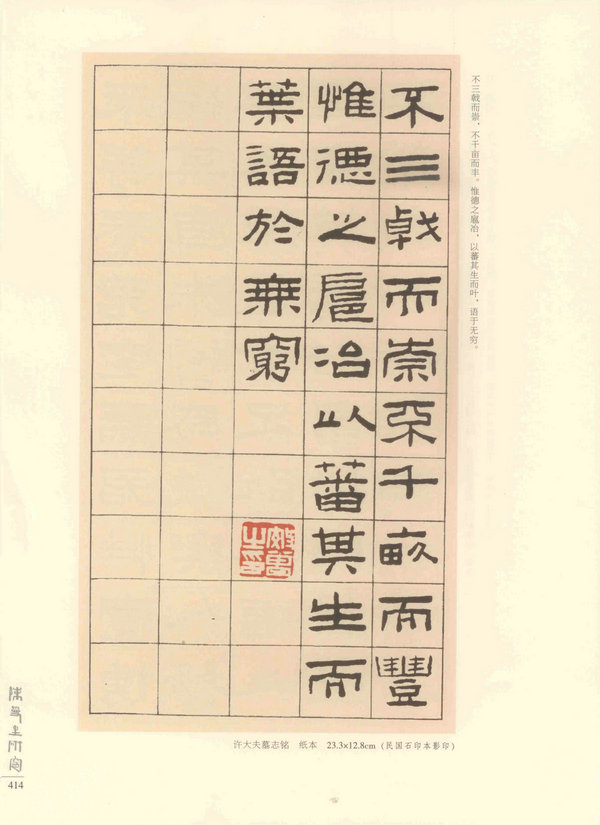 不三戟而崇不千畝而豐
惟德之扈冶以蕃其生而
葉語於無窮
不三戟而崇，不千亩而丰。惟德之扈冶，以蕃其生而叶，语于无穷。
许大夫墓志铭 纸本 23.3×12.8cm（民国石印本影印）
414